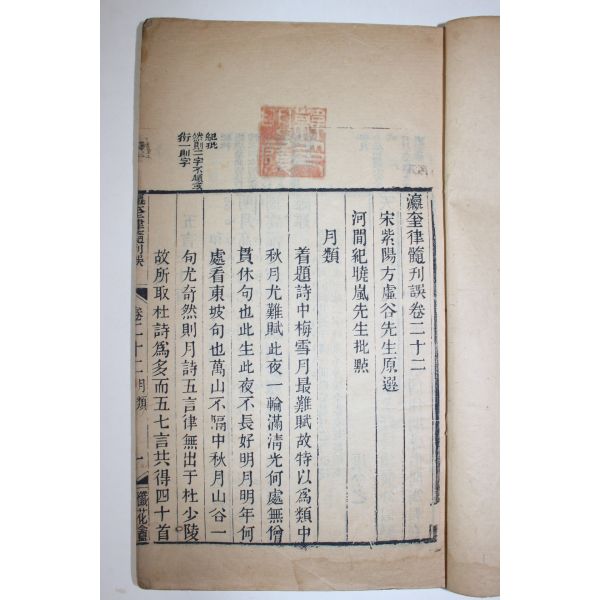 瀛奎律髓刊誤卷二十二
宋紫陽方虛谷先生原選
河間紀曉嵐先生批點
月類
着題詩中梅雪月最難賦故特以爲類中
秋月尤難賦此夜一輪滿淸光何處無僧
貫休句也此生此夜不長好明月明年何
處看東坡句也萬山不隔中秋月山谷一
句尤奇然則月詩五言律無出于杜少陵
故所取杜詩爲多而五七言共得四十首
紀批
然則二字不順或
衍一則字
瀛奎律髓刊誤
卷二十二月類
一
懺花盦